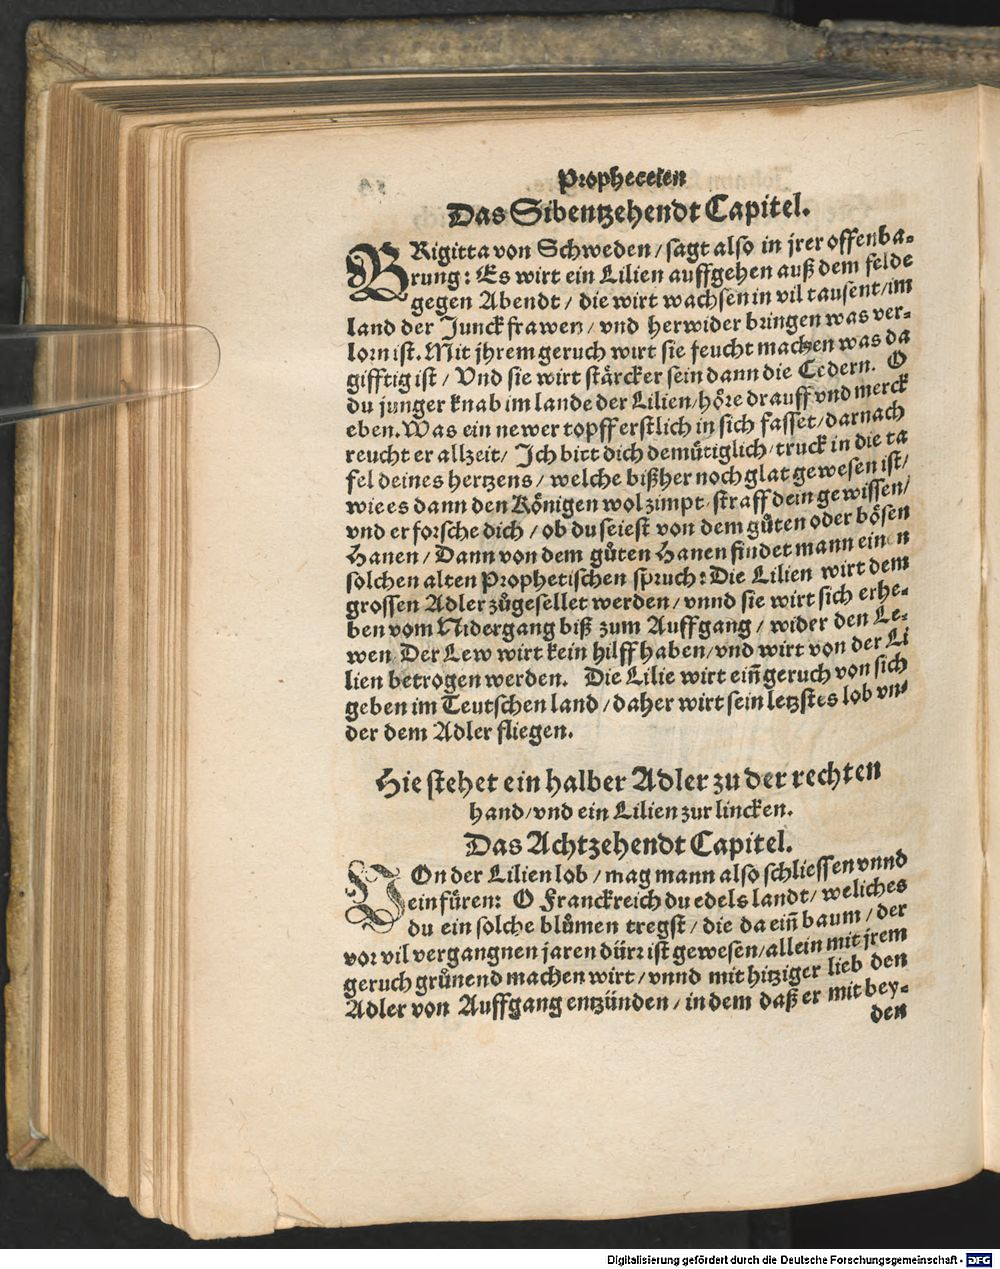 Propheceien
Das Sibentzehendt Capitel.
BRigitta von Schweden / sagt also in jrer offenba-
rung: Es wirt ein Lilien auffgehen auß dem felde
gegen Abendt / die wirt wachsen in vil tausent / im
land der Junckfrawen / vnd herwider bringen was ver-
lorn ist. Mit jhrem geruch wirt sie feucht machen was da
gifftig ist / Vnd sie wirt stärcker sein dann die Cedern. O
du junger knab im lande der Lilien / höre drauff vnd merck
eben. Was ein newer topff erstlich in sich fasset / darnach
reucht er allzeit / Ich bitt dich demütiglich / truck in die ta
fel deines hertzens / welche bißher noch glat gewesen ist /
wie es dann den Königen wol zimpt / straff dein gewissen /
vnd erforsche dich / ob du seiest von dem gůten oder bösen
Hanen / Dann von dem gůten Hanen findet mann einen
solchen alten Prophetischen spruch: Die Lilien wirt dem
grossen Adler zůgesellet werden / vnnd sie wirt sich erhe-
ben vom Nidergang biß zum Auffgang / wider den Le-
wen Der Lew wirt kein hilff haben / vnd wirt von der Li
lien betrogen werden. Die Lilie wirt eiñ geruch von sich
geben im Teutschen land / daher wirt sein letzstes lob vn-
der dem Adler fliegen.
Hie stehet ein halber Adler zu der rechten
hand / vnd ein Lilien zur lincken.
Das Achtzehendt Capitel.
VOn der Lilien lob / mag mann also schliessen vnnd
einfüren: O Franckreich du edels landt / weliches
du ein solche blůmen tregst / die da eiñ baum / der
vor vil vergangnen jaren dürr ist gewesen / allein mit jrem
geruch grůnend machen wirt / vnnd mit hitziger lieb den
Adler von Auffgang entzünden / in dem daß er mit bey-
den
Digitalisierung gefördert durch die Deutsche Forschungsgemeinschaft - DFG